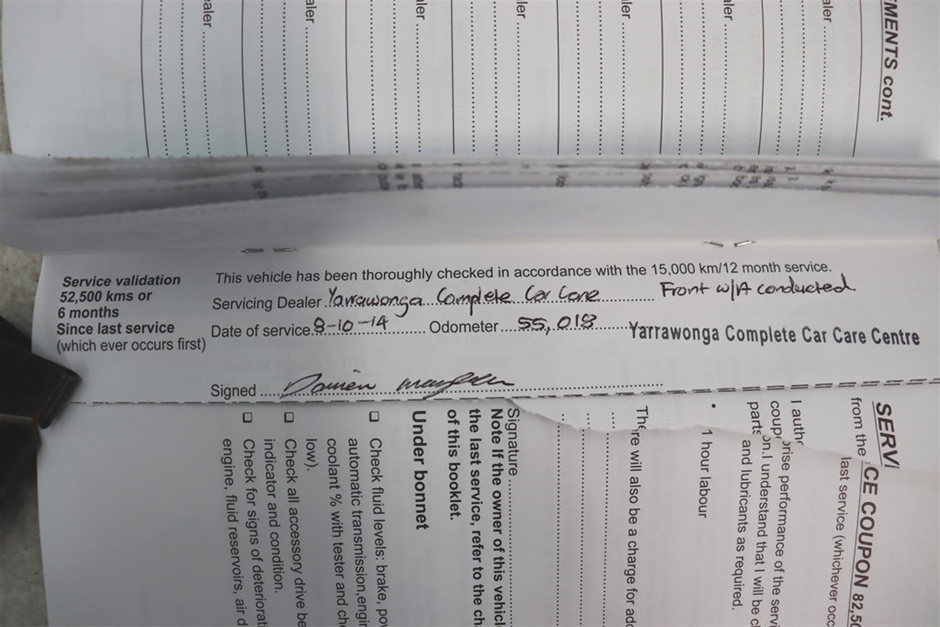 MENTS cont.
aler
aler
aler
aler
aler
aler
aler
Service validation
52,500 kms or
6 months
Since last service
(which ever occurs first)
This vehicle has been thoroughly checked in accordance with the 15,000 km/12 month service.
Servicing Dealer Yarrawonga Complete Car Care Front w/A conducted.
Date of service 8-10-14 Odometer 55,018 Yarrawonga Complete Car Care Centre
Signed Damien
SERVI
CE COUPON 82,50
from the
last service (whichever occ
I autho
rise performance of the servi
coup
on. I understand that I will be c
parts
and lubricants as required.
• 1 hour labour
There will also be a charge for add
Signature
Note If the owner of this vehicl
the last service, refer to the ch
of this booklet.
Under bonnet
☐ Check fluid levels: brake, pow
automatic transmission, engin
coolant % with tester and che
low).
☐ Check all accessory drive be
indicator and condition.
☐ Check for signs of deteriorat
engine, fluid reservoirs, air d